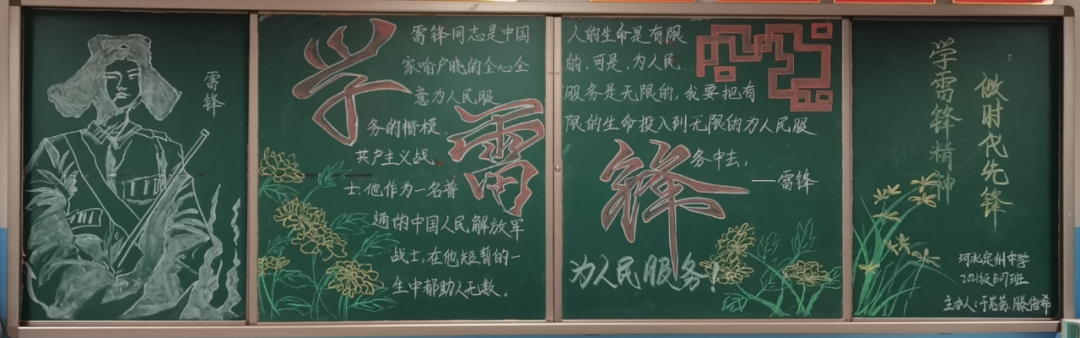 雷锋
学
雷
雷锋同志是中国
家喻户晓的全心全
意为人民服
务的楷模、
共产主义战
士,他作为一名普
通的中国人民解放军
战士,在他短暂的一
生中都助人无数。
人的生命是有限
的,可是,为人民
服务是无限的,我要把有
限的生命投入到无限的为人民服
务中去。
——雷锋
锋
为人民服务!
学雷锋精神
做时代先锋
河北定州中学
主办人:于思